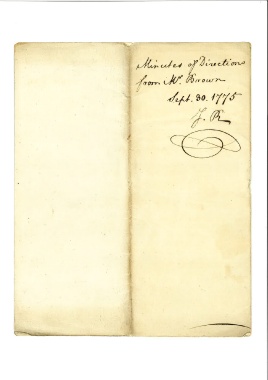 Minutes of Direction
from Mr. Brown
Sept. 30. 1775
J. R